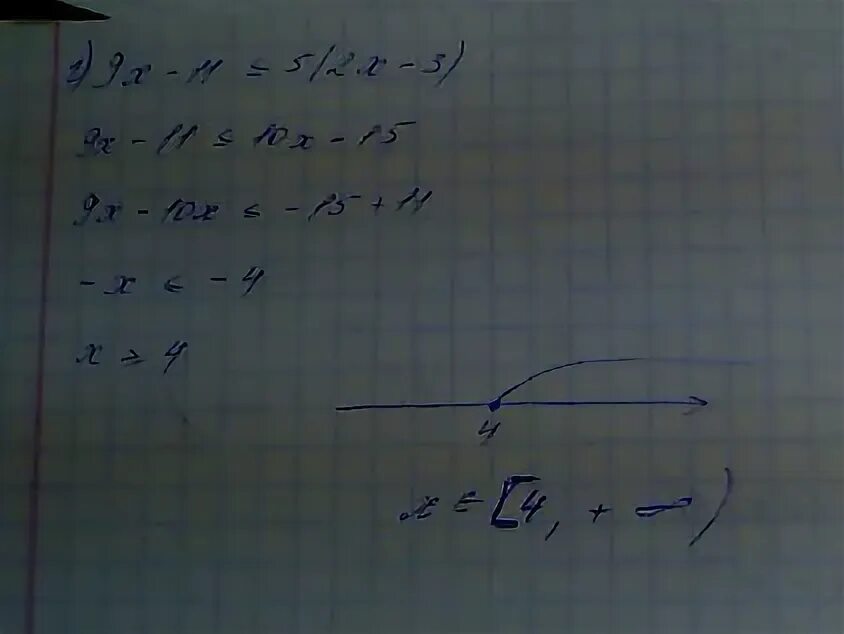 г) 9x - 11 ≤ 5(2x - 3)
9x - 11 ≤ 10x - 15
9x - 10x ≤ -15 + 11
-x ≤ -4
x ≥ 4
4
x ∈ [4, + ∞)